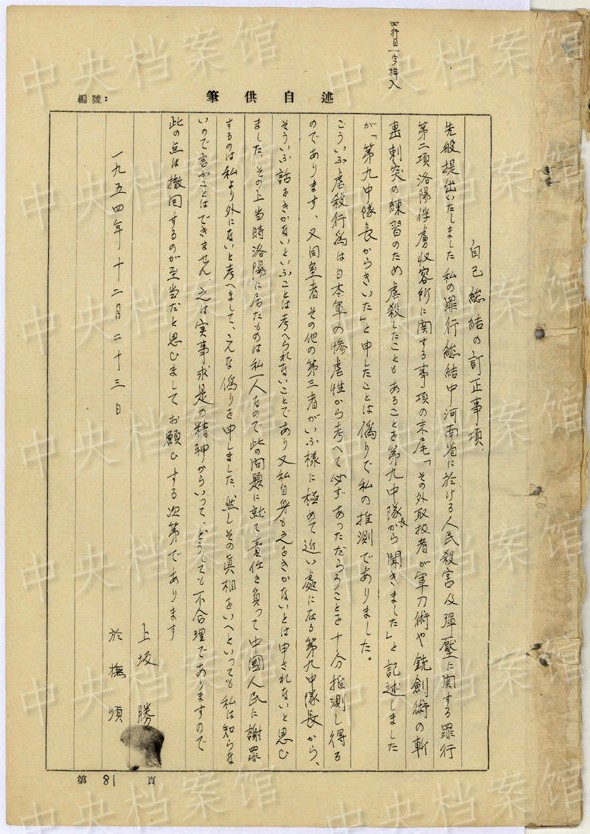 四行目一字挿入
編號：
述自供筆
自己総結の訂正事項
先般提出いたしました私の罪行総結中河南省に於ける人民殺害及弾圧に関する罪行
第二項洛陽俘虜収容所に関する事項の末尾「その外取扱者が軍刀術や銃剣術の斬
撃刺突の練習のため虐殺したこともあることを第九中隊長から聞きました」と記述しました
が「第九中隊長からきいた」と申したことは偽りで私の推測でありました。
こういふ虐殺行為は日本軍の惨虐性から考へて必ずあっただらうことを十分推測し得る
のであります、又同室者その他の第三者がいふ様に極めて近い處に在る第九中隊長から、
そういふ話をきかないといふことは考へられないことであり又私自身も之をきかないとは申されないと思ひ
ました、その上当時洛陽に居たものは私一人なので此の問題に就て責任を負って中國人民に謝罪
するのは私より外にないと考へまして、こんな偽りを申しました、然しその真相をいへといっても私は知らな
いので言ふことはできません、之は実事求是の精神からいって、どうしても不合理でありますので
此の点は撤回するのが至当だと思ひましてお願ひする次第であります
一九五四年十二月二十三日
上坂勝
於撫順
第81頁
中央档案馆